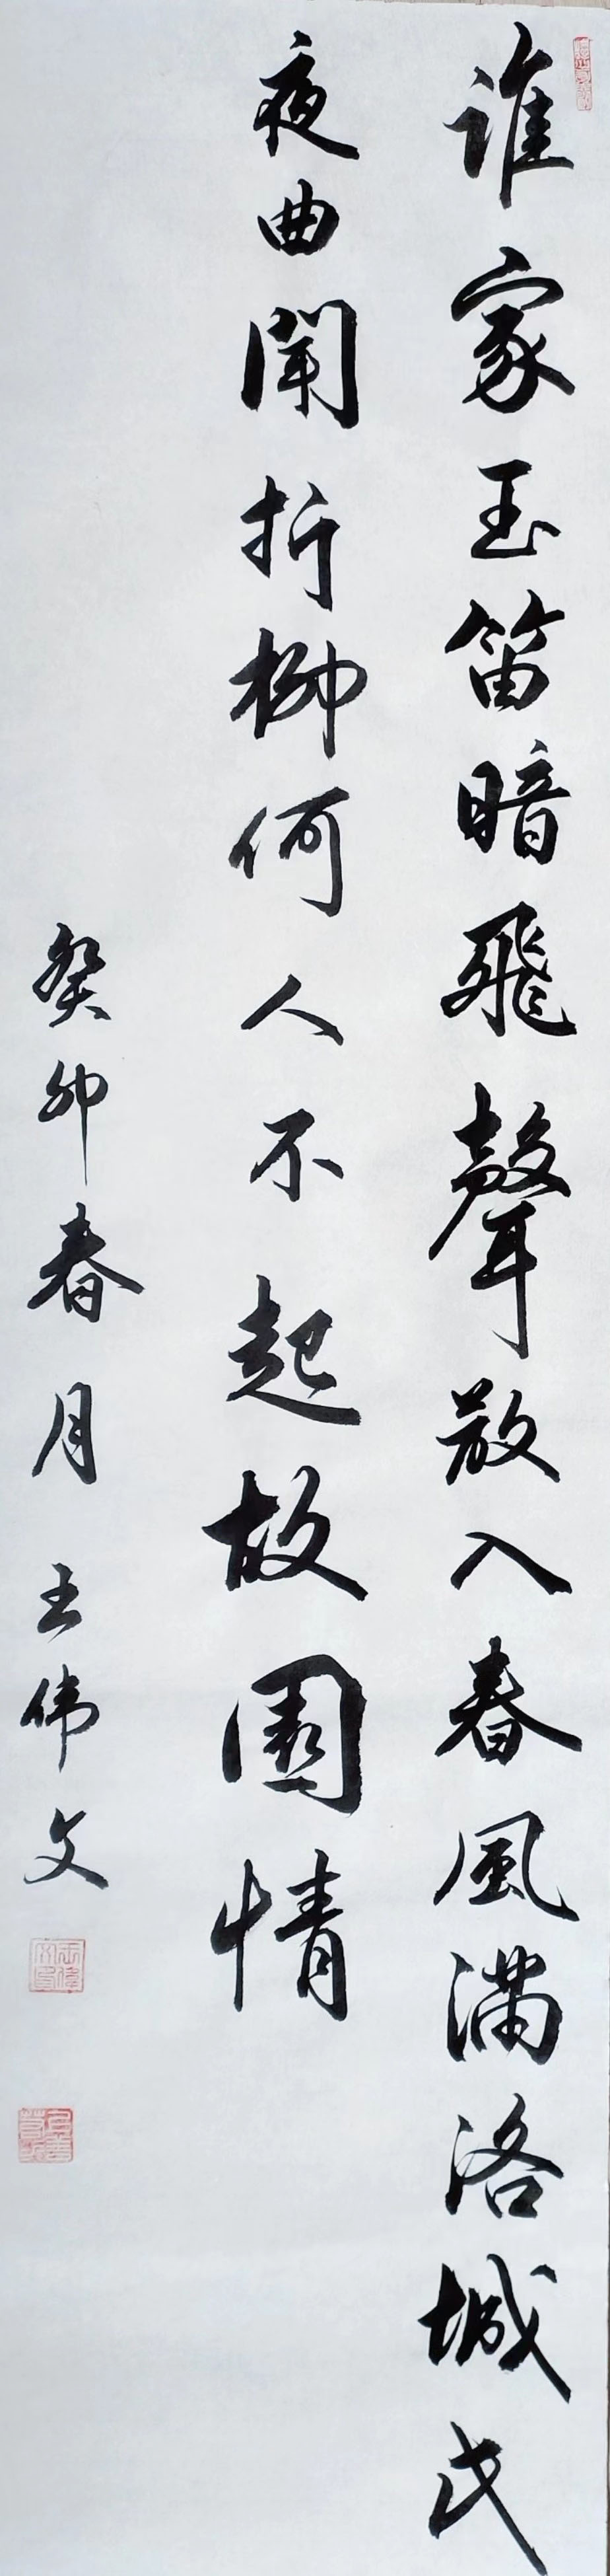 誰家玉笛暗飛聲散入春風滿洛城此
夜曲聞折柳何人不起故園情
癸卯春月 王伟文